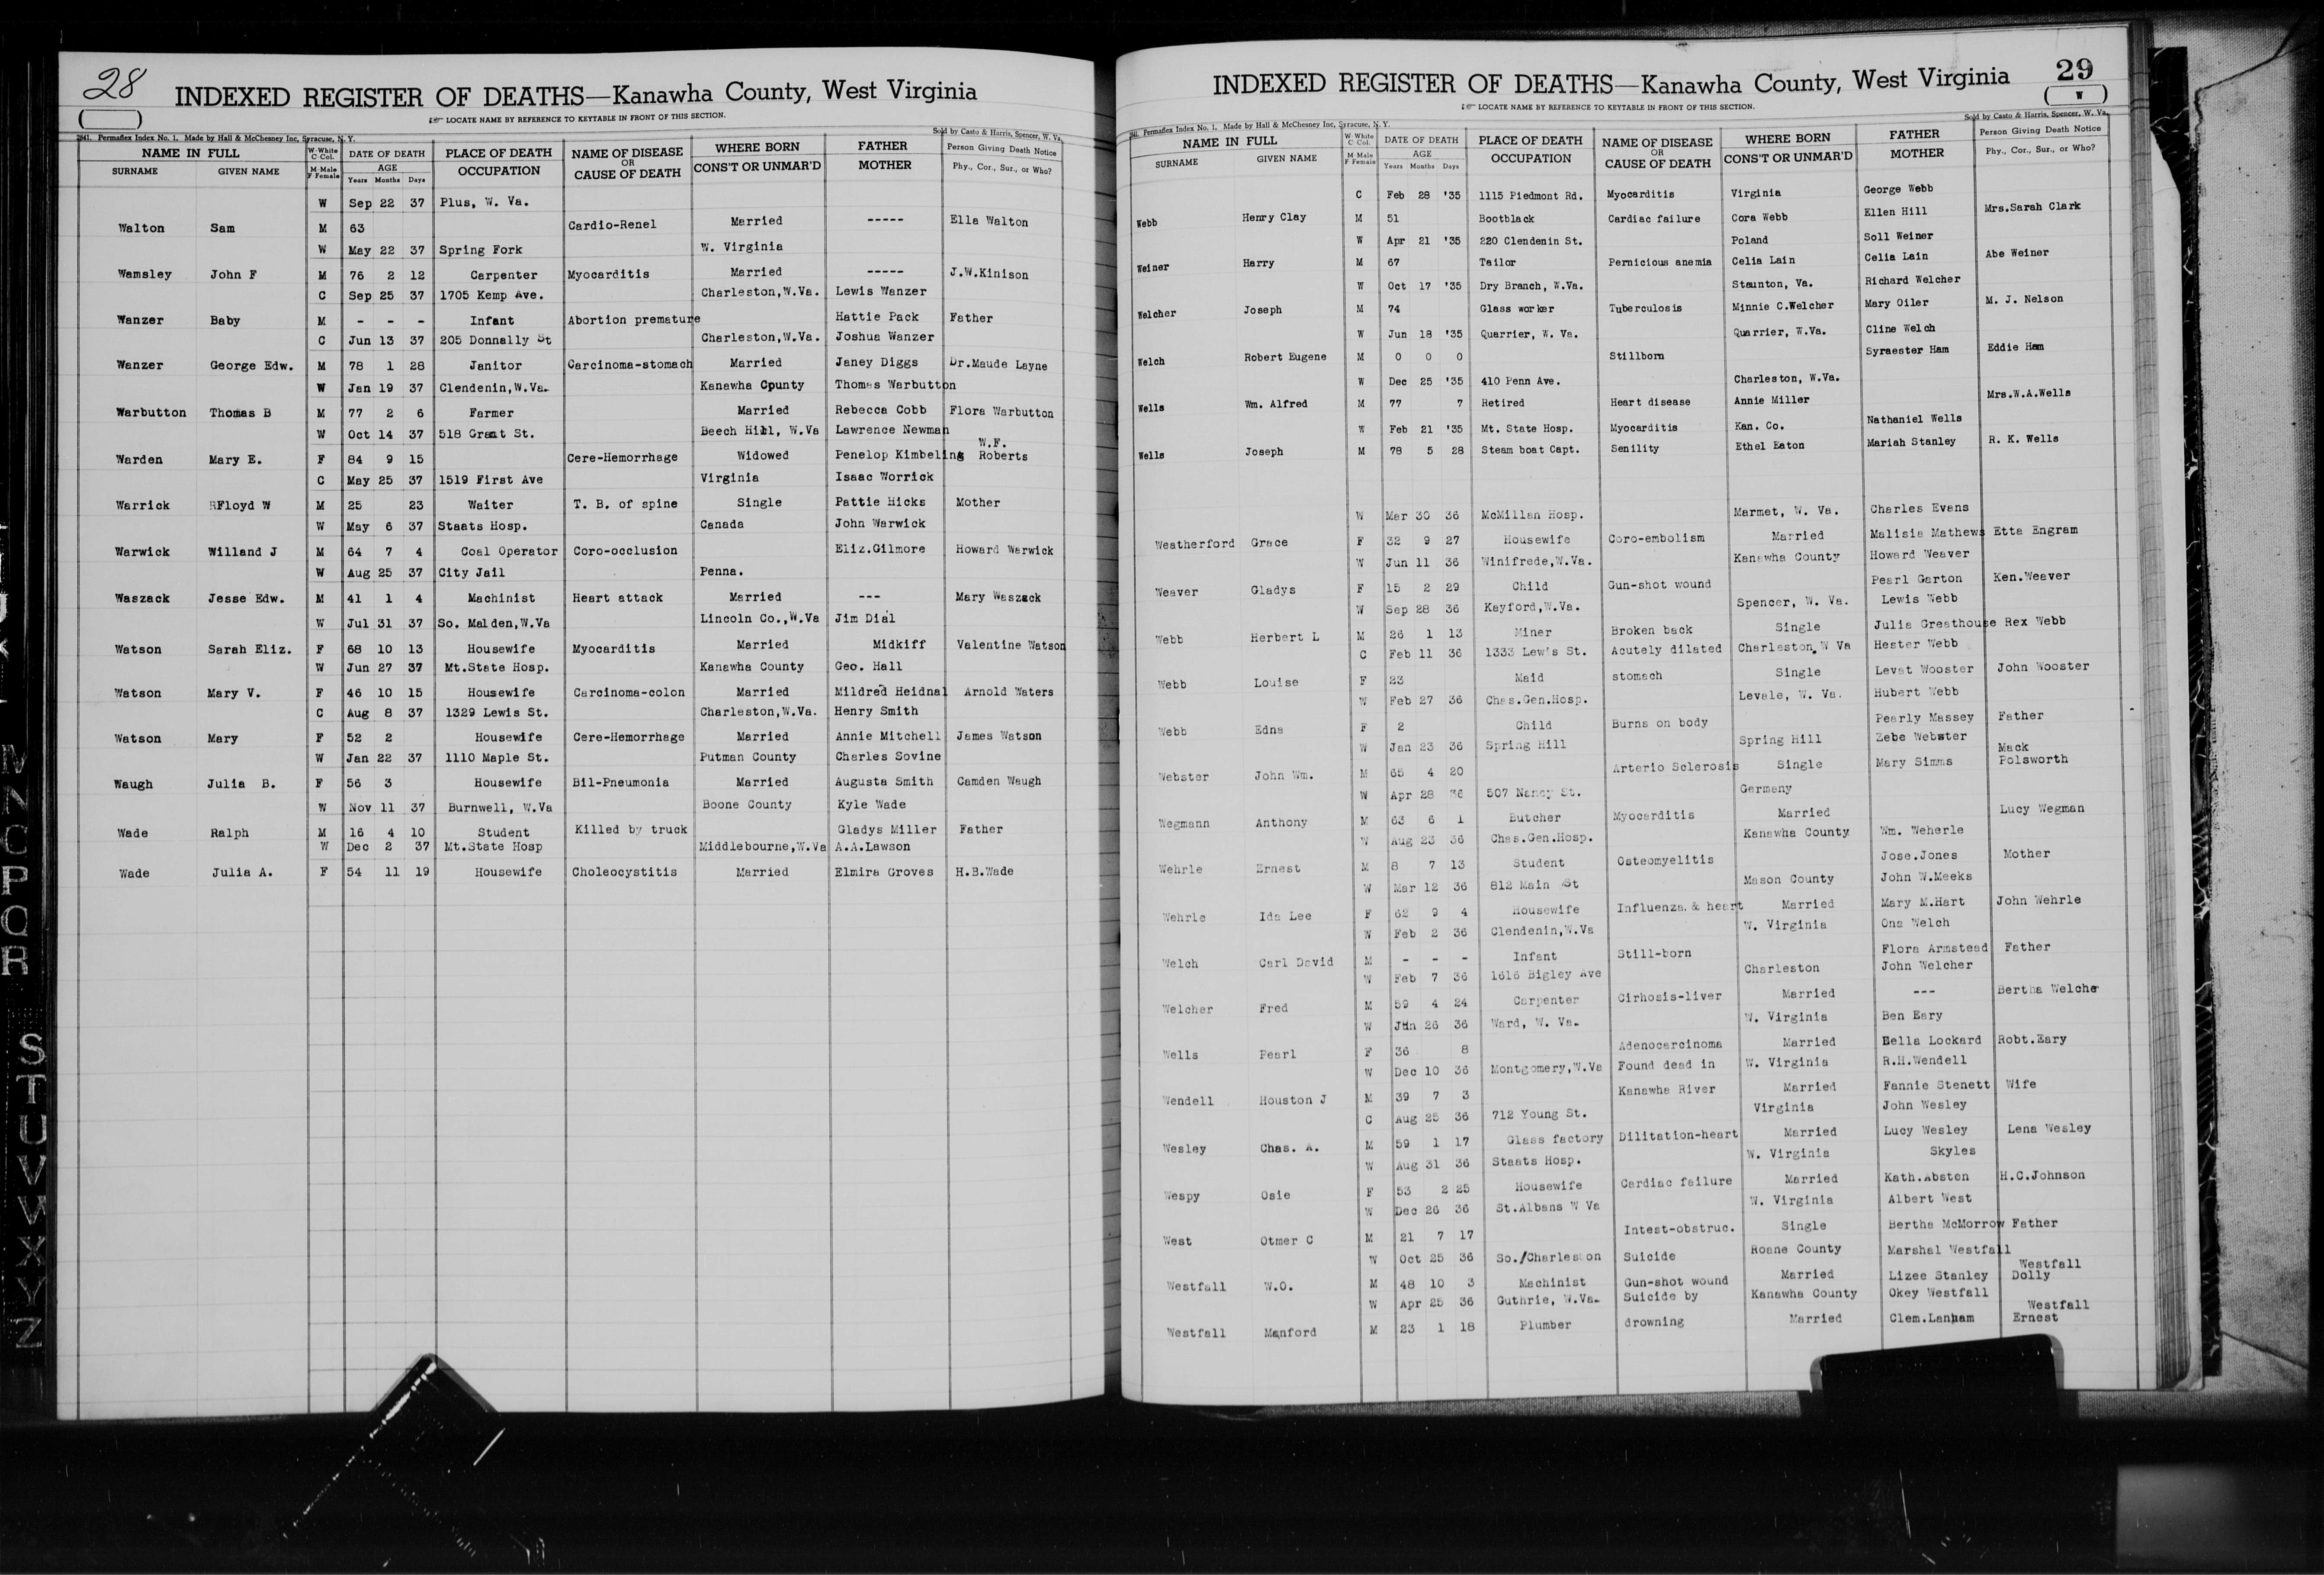 28
INDEXED REGISTER OF DEATHS—Kanawha County, West Virginia
LOCATE NAME BY REFERENCE TO KEYTABLE IN FRONT OF THIS SECTION.
2841. Permaflex Index No. 1. Made by Hall & McChesney Inc, Syracuse, N. Y. Sold by Casto & Harris, Spencer, W. Va.
NAME IN FULL W-White C-Col. DATE OF DEATH PLACE OF DEATH NAME OF DISEASE OR CAUSE OF DEATH WHERE BORN FATHER Person Giving Death Notice
SURNAME GIVEN NAME M-Male F-Female AGE Years Months Days OCCUPATION CONS'T OR UNMAR'D MOTHER Phy., Cor., Sur., or Who?
W Sep 22 37 Plus, W. Va.
Walton Sam M 63 Cardio-Renel Married ----- Ella Walton
W May 22 37 Spring Fork W. Virginia
Wamsley John F M 76 2 12 Carpenter Myocarditis Married ----- J.W.Kinison
C Sep 25 37 1705 Kemp Ave. Charleston,W.Va. Lewis Wanzer
Wanzer Baby M - - - Infant Abortion premature Hattie Pack Father
C Jun 13 37 205 Donnally St Charleston,W.Va. Joshua Wanzer
Wanzer George Edw. M 78 1 28 Janitor Carcinoma-stomach Married Janey Diggs Dr.Maude Layne
W Jan 19 37 Clendenin,W.Va. Kanawha County Thomas Warbutton
Warbutton Thomas B M 77 2 6 Farmer Married Rebecca Cobb Flora Warbutton
W Oct 14 37 518 Grant St. Beech Hill, W.Va Lawrence Newman
Warden Mary E. F 84 9 15 Cere-Hemorrhage Widowed Penelop Kimbeling W.F. Roberts
C May 25 37 1519 First Ave Virginia Isaac Worrick
Warrick Floyd W M 25 23 Waiter T. B. of spine Single Pattie Hicks Mother
W May 6 37 Staats Hosp. Canada John Warwick
Warwick Willand J M 64 7 4 Coal Operator Coro-occlusion Eliz.Gilmore Howard Warwick
W Aug 25 37 City Jail Penna.
Waszack Jesse Edw. M 41 1 4 Machinist Heart attack Married --- Mary Waszack
W Jul 31 37 So. Malden,W.Va Lincoln Co.,W.Va Jim Dial
Watson Sarah Eliz. F 68 10 13 Housewife Myocarditis Married Midkiff Valentine Watson
W Jun 27 37 Mt.State Hosp. Kanawha County Geo. Hall
Watson Mary V. F 46 10 15 Housewife Carcinoma-colon Married Mildred Heidnal Arnold Waters
C Aug 8 37 1329 Lewis St. Charleston,W.Va. Henry Smith
Watson Mary F 52 2 Housewife Cere-Hemorrhage Married Annie Mitchell James Watson
W Jan 22 37 1110 Maple St. Putman County Charles Sovine
Waugh Julia B. F 56 3 Housewife Bil-Pneumonia Married Augusta Smith Camden Waugh
W Nov 11 37 Burnwell, W.Va Boone County Kyle Wade
Wade Ralph M 16 4 10 Student Killed by truck Gladys Miller Father
W Dec 2 37 Mt.State Hosp Middlebourne,W.Va A.A.Lawson
Wade Julia A. F 54 11 19 Housewife Choleocystitis Married Elmira Groves H.B.Wade
29
INDEXED REGISTER OF DEATHS—Kanawha County, West Virginia
( W )
LOCATE NAME BY REFERENCE TO KEYTABLE IN FRONT OF THIS SECTION.
Permaflex Index No. 1. Made by Hall & McChesney Inc, Syracuse, N. Y. Sold by Casto & Harris, Spencer, W. Va.
NAME IN FULL W-White C-Col. DATE OF DEATH PLACE OF DEATH NAME OF DISEASE OR CAUSE OF DEATH WHERE BORN FATHER Person Giving Death Notice
SURNAME GIVEN NAME M-Male F-Female AGE Years Months Days OCCUPATION CONS'T OR UNMAR'D MOTHER Phy., Cor., Sur., or Who?
C Feb 28 '35 1115 Piedmont Rd. Myocarditis Virginia George Webb
Webb Henry Clay M 51 Bootblack Cardiac failure Cora Webb Ellen Hill Mrs.Sarah Clark
W Apr 21 '35 220 Clendenin St. Poland Soll Weiner
Weiner Harry M 67 Tailor Pernicious anemia Celia Lain Celia Lain Abe Weiner
W Oct 17 '35 Dry Branch, W.Va. Staunton, Va. Richard Welcher
Welcher Joseph M 74 Glass worker Tuberculosis Minnie C.Welcher Mary Oiler M. J. Nelson
W Jun 18 '35 Quarrier, W. Va. Quarrier, W.Va. Cline Welch
Welch Robert Eugene M 0 0 0 Stillborn Syraester Ham Eddie Ham
W Dec 25 '35 410 Penn Ave. Charleston, W.Va.
Wells Wm. Alfred M 77 7 Retired Heart disease Annie Miller Mrs.W.A.Wells
W Feb 21 '35 Mt. State Hosp. Myocarditis Kan. Co. Nathaniel Wells
Wells Joseph M 78 5 28 Steam boat Capt. Senility Ethel Eaton Mariah Stanley R. K. Wells
W Mar 30 36 McMillan Hosp. Marmet, W. Va. Charles Evans
Weatherford Grace F 32 9 27 Housewife Coro-embolism Married Malisia Mathews Etta Engram
W Jun 11 36 Winifrede,W.Va. Kanawha County Howard Weaver
Weaver Gladys F 15 2 29 Child Gun-shot wound Pearl Garton Ken.Weaver
W Sep 28 36 Kayford,W.Va. Spencer, W. Va. Lewis Webb
Webb Herbert L M 26 1 13 Miner Broken back Single Julia Greathouse Rex Webb
C Feb 11 36 1333 Lewis St. Acutely dilated Charleston,W Va Hester Webb
Webb Louise F 23 Maid stomach Single Levat Wooster John Wooster
W Feb 27 36 Chas.Gen.Hosp. Levale, W. Va. Hubert Webb
Webb Edna F 2 Child Burns on body Pearly Massey Father
W Jan 23 36 Spring Hill Spring Hill Zebe Webster
Webster John Wm. M 65 4 20 Arterio Sclerosis Single Mary Simms Mack Polsworth
W Apr 28 36 507 Nancy St. Germany
Wegmann Anthony M 63 6 1 Butcher Myocarditis Married Lucy Wegman
W Aug 23 36 Chas.Gen.Hosp. Kanawha County Wm. Weherle
Wehrle Ernest M 8 7 13 Student Osteomyelitis Jose.Jones Mother
W Mar 12 36 812 Main St Mason County John W.Meeks
Wehrle Ida Lee F 62 9 4 Housewife Influenza & heart Married Mary M.Hart John Wehrle
W Feb 2 36 Clendenin,W.Va W. Virginia Ona Welch
Welch Carl David M - - - Infant Still-born Flora Armstead Father
W Feb 7 36 1616 Bigley Ave Charleston John Welcher
Welcher Fred M 59 4 24 Carpenter Cirhosis-liver Married --- Bertha Welche
W Jun 26 36 Ward, W. Va. W. Virginia Ben Eary
Wells Pearl F 36 8 Adenocarcinoma Married Bella Lockard Robt.Eary
W Dec 10 36 Montgomery,W.Va Found dead in W. Virginia R.H.Wendell
Wendell Houston J M 39 7 3 Kanawha River Married Fannie Stenett Wife
C Aug 25 36 712 Young St. Virginia John Wesley
Wesley Chas. A. M 59 1 17 Glass factory Dilitation-heart Married Lucy Wesley Lena Wesley
W Aug 31 36 Staats Hosp. W. Virginia Skyles
Wespy Osie F 53 2 25 Housewife Cardiac failure Married Kath.Absten H.C.Johnson
W Dec 26 36 St.Albans W Va W. Virginia Albert West
West Otmer C M 21 7 17 Intest-obstruc. Single Bertha McMorrow Father
W Oct 25 36 So./Charleston Suicide Roane County Marshal Westfall
Westfall W.O. M 48 10 3 Machinist Gun-shot wound Married Lizee Stanley Westfall Dolly
W Apr 25 36 Guthrie, W.Va. Suicide by Kanawha County Okey Westfall
Westfall Manford M 23 1 18 Plumber drowning Married Clem.Lanham Westfall Ernest
S
T
U
V
W
X
Y
Z